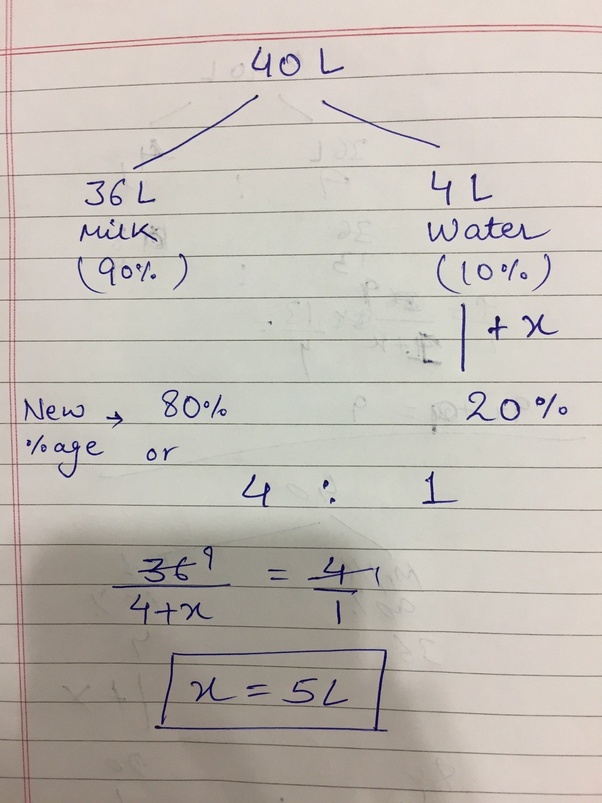 40 L
36 L 4 L
Milk Water
(90%) (10%)
+ x
New → 80% 20%
%age or
4 : 1
36 9 / 4+x = 4 1 / 1
x = 5L